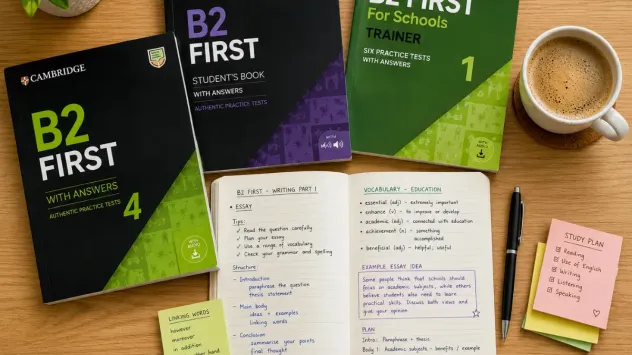 CAMBRIDGE
B2
FIRST
WITH ANSWERS
AUTHENTIC PRACTICE TESTS
4
WITH AUDIO
B2
FIRST
STUDENT'S BOOK
WITH ANSWERS
AUTHENTIC PRACTICE TESTS
WITH AUDIO
B2 FIRST
For Schools
TRAINER
SIX PRACTICE TESTS
WITH ANSWERS
1
WITH AUDIO
B2 FIRST - WRITING PART 1
• ESSAY
Tips:
✓ Read the question carefully
✓ Plan your essay
✓ Use a range of vocabulary
✓ Check your grammar and spelling
Structure:
- Introduction
paraphrase the question
thesis statement
- Main body
ideas + examples
linking words
- Conclusion
summarise your points
final thought
VOCABULARY - EDUCATION
• essential (adj) - extremely important
• enhance (v) - to improve or develop
• academic (adj) - connected with education
• achievement (n) - something
accomplished
• beneficial (adj) - helpful; useful
EXAMPLE ESSAY IDEA
Some people think that schools should
focus on academic subjects, while others
believe students also need to learn
practical skills. Discuss both views and
give your opinion.
PLAN
Intro: Paraphrase + thesis
Body 1: Academic subjects - benefits / example
LINKING WORDS
however
moreover
in addition
hand
STUDY PLAN
Reading
Use of English
Writing
Listening
Speaking